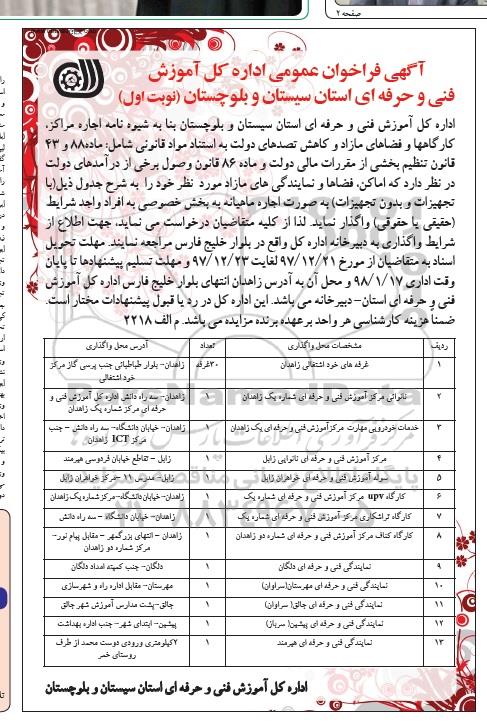 صفحه ۲
آگهی فراخوان عمومی اداره کل آموزش
فنی و حرفه ای استان سیستان و بلوچستان (نوبت اول)
اداره کل آموزش فنی و حرفه ای استان سیستان و بلوچستان بنا به شیوه نامه اجاره مراکز،
کارگاهها و فضاهای مازاد و کاهش تصدهای دولت به استناد مواد قانونی شامل: ماده۸۸ و ۴۳
قانون تنظیم بخشی از مقررات مالی دولت و ماده ۸۶ قانون وصول برخی از درآمدهای دولت
در نظر دارد که اماکن، فضاها و نمایندگی های مازاد مورد نظر خود را به شرح جدول ذیل(با
تجهیزات و بدون تجهیزات) به صورت اجاره ماهیانه به بخش خصوصی به افراد واجد شرایط
(حقیقی یا حقوقی) واگذار نماید. لذا از کلیه متقاضیان درخواست می نماید، جهت اطلاع از
شرایط واگذاری به دبیرخانه اداره کل واقع در بلوار خلیج فارس مراجعه نمایند. مهلت تحویل
اسناد به متقاضیان از مورخ ۹۷/۱۲/۲۱ لغایت ۹۷/۱۲/۲۳ و مهلت تسلیم پیشنهادها تا پایان
وقت اداری ۹۸/۱/۱۷ و محل آن به آدرس زاهدان انتهای بلوار خلیج فارس اداره کل آموزش
فنی و حرفه ای استان- دبیرخانه می باشد. این اداره کل در رد یا قبول پیشنهادات مختار است.
ضمناً هزینه کارشناسی هر واحد بر عهده برنده مزایده می باشد. م الف ۲۲۱۸
ردیف مشخصات محل واگذاری تعداد آدرس محل واگذاری
۱ غرفه های خود اشتغالی زاهدان ۳۰غرفه زاهدان- بلوار طباطبائی جنب پرسی گاز مرکز
خود اشتغالی
۲ نانوائی مرکز آموزش فنی و حرفه ای شماره یک زاهدان ۱ زاهدان- سه راه دانش اداره کل آموزش فنی و
حرفه ای مرکز شماره یک زاهدان
۳ خدمات خودرویی مهارت مرکز آموزش فنی و حرفه ای یک زاهدان ۱ زاهدان- خیابان دانشگاه- سه راه دانش – جنب
مرکز ICT زاهدان
۴ مرکز آموزش فنی و حرفه ای نانوایی زابل ۱ زابل – تقاطع خیابان فردوسی هیرمند
۵ سوله آموزش فنی و حرفه ای خواهران زابل ۱ زابل- مدرس ۱۱ –مرکز خواهران زابل
۶ کارگاه upv مرکز آموزش فنی و حرفه ای شماره یک ۱ زاهدان-خیابان دانشگاه-مرکز شماره یک زاهدان
۷ کارگاه تراشکاری مرکز آموزش فنی و حرفه ای شماره یک ۱ زاهدان- خیابان دانشگاه – سه راه دانش
۸ کارگاه کناف مرکز آموزش فنی و حرفه ای شماره دو زاهدان ۱ زاهدان – انتهای بزرگمهر – مقابل پیام نور-
مرکز شماره دو زاهدان
۹ نمایندگی فنی و حرفه ای دلگان ۱ دلگان- جنب کمیته امداد دلگان
۱۰ نمایندگی فنی و حرفه ای مهرستان(سراوان) ۱ مهرستان- مقابل اداره راه و شهرسازی
۱۱ نمایندگی فنی و حرفه ای جالق( سراوان) ۱ جالق-پشت مدارس آموزش شهر جالق
۱۲ نمایندگی فنی و حرفه ای پیشین( سرباز) ۱ پیشین- ابتدای شهر- جنب اداره بهداشت
۱۳ نمایندگی فنی و حرفه ای هیرمند ۱ ۲کیلومتری ورودی دوست محمد از طرف
روستای خمر
اداره کل آموزش فنی و حرفه ای استان سیستان و بلوچستان